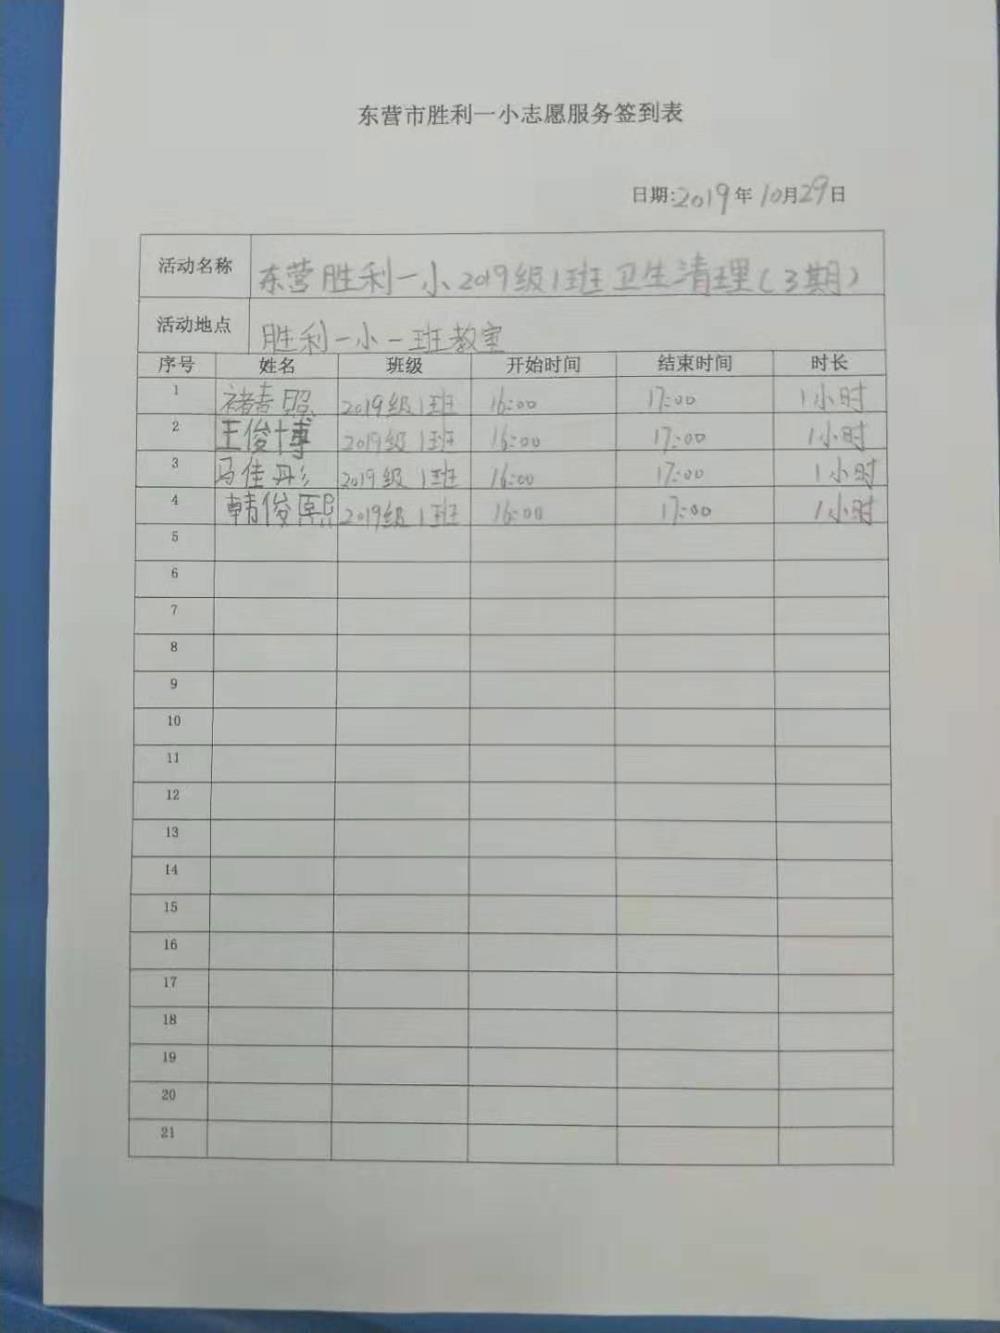 东营市胜利一小志愿服务签到表
日期:2019年10月29日
活动名称 东营胜利一小2019级1班卫生清理(3期)
活动地点 胜利一小一班教室
序号 姓名 班级 开始时间 结束时间 时长
1 褚喜照 2019级1班 16:00 17:00 1小时
2 王俊博 2019级1班 16:00 17:00 1小时
3 马佳彤 2019级1班 16:00 17:00 1小时
4 韩俊熙 2019级1班 16:00 17:00 1小时
5
6
7
8
9
10
11
12
13
14
15
16
17
18
19
20
21